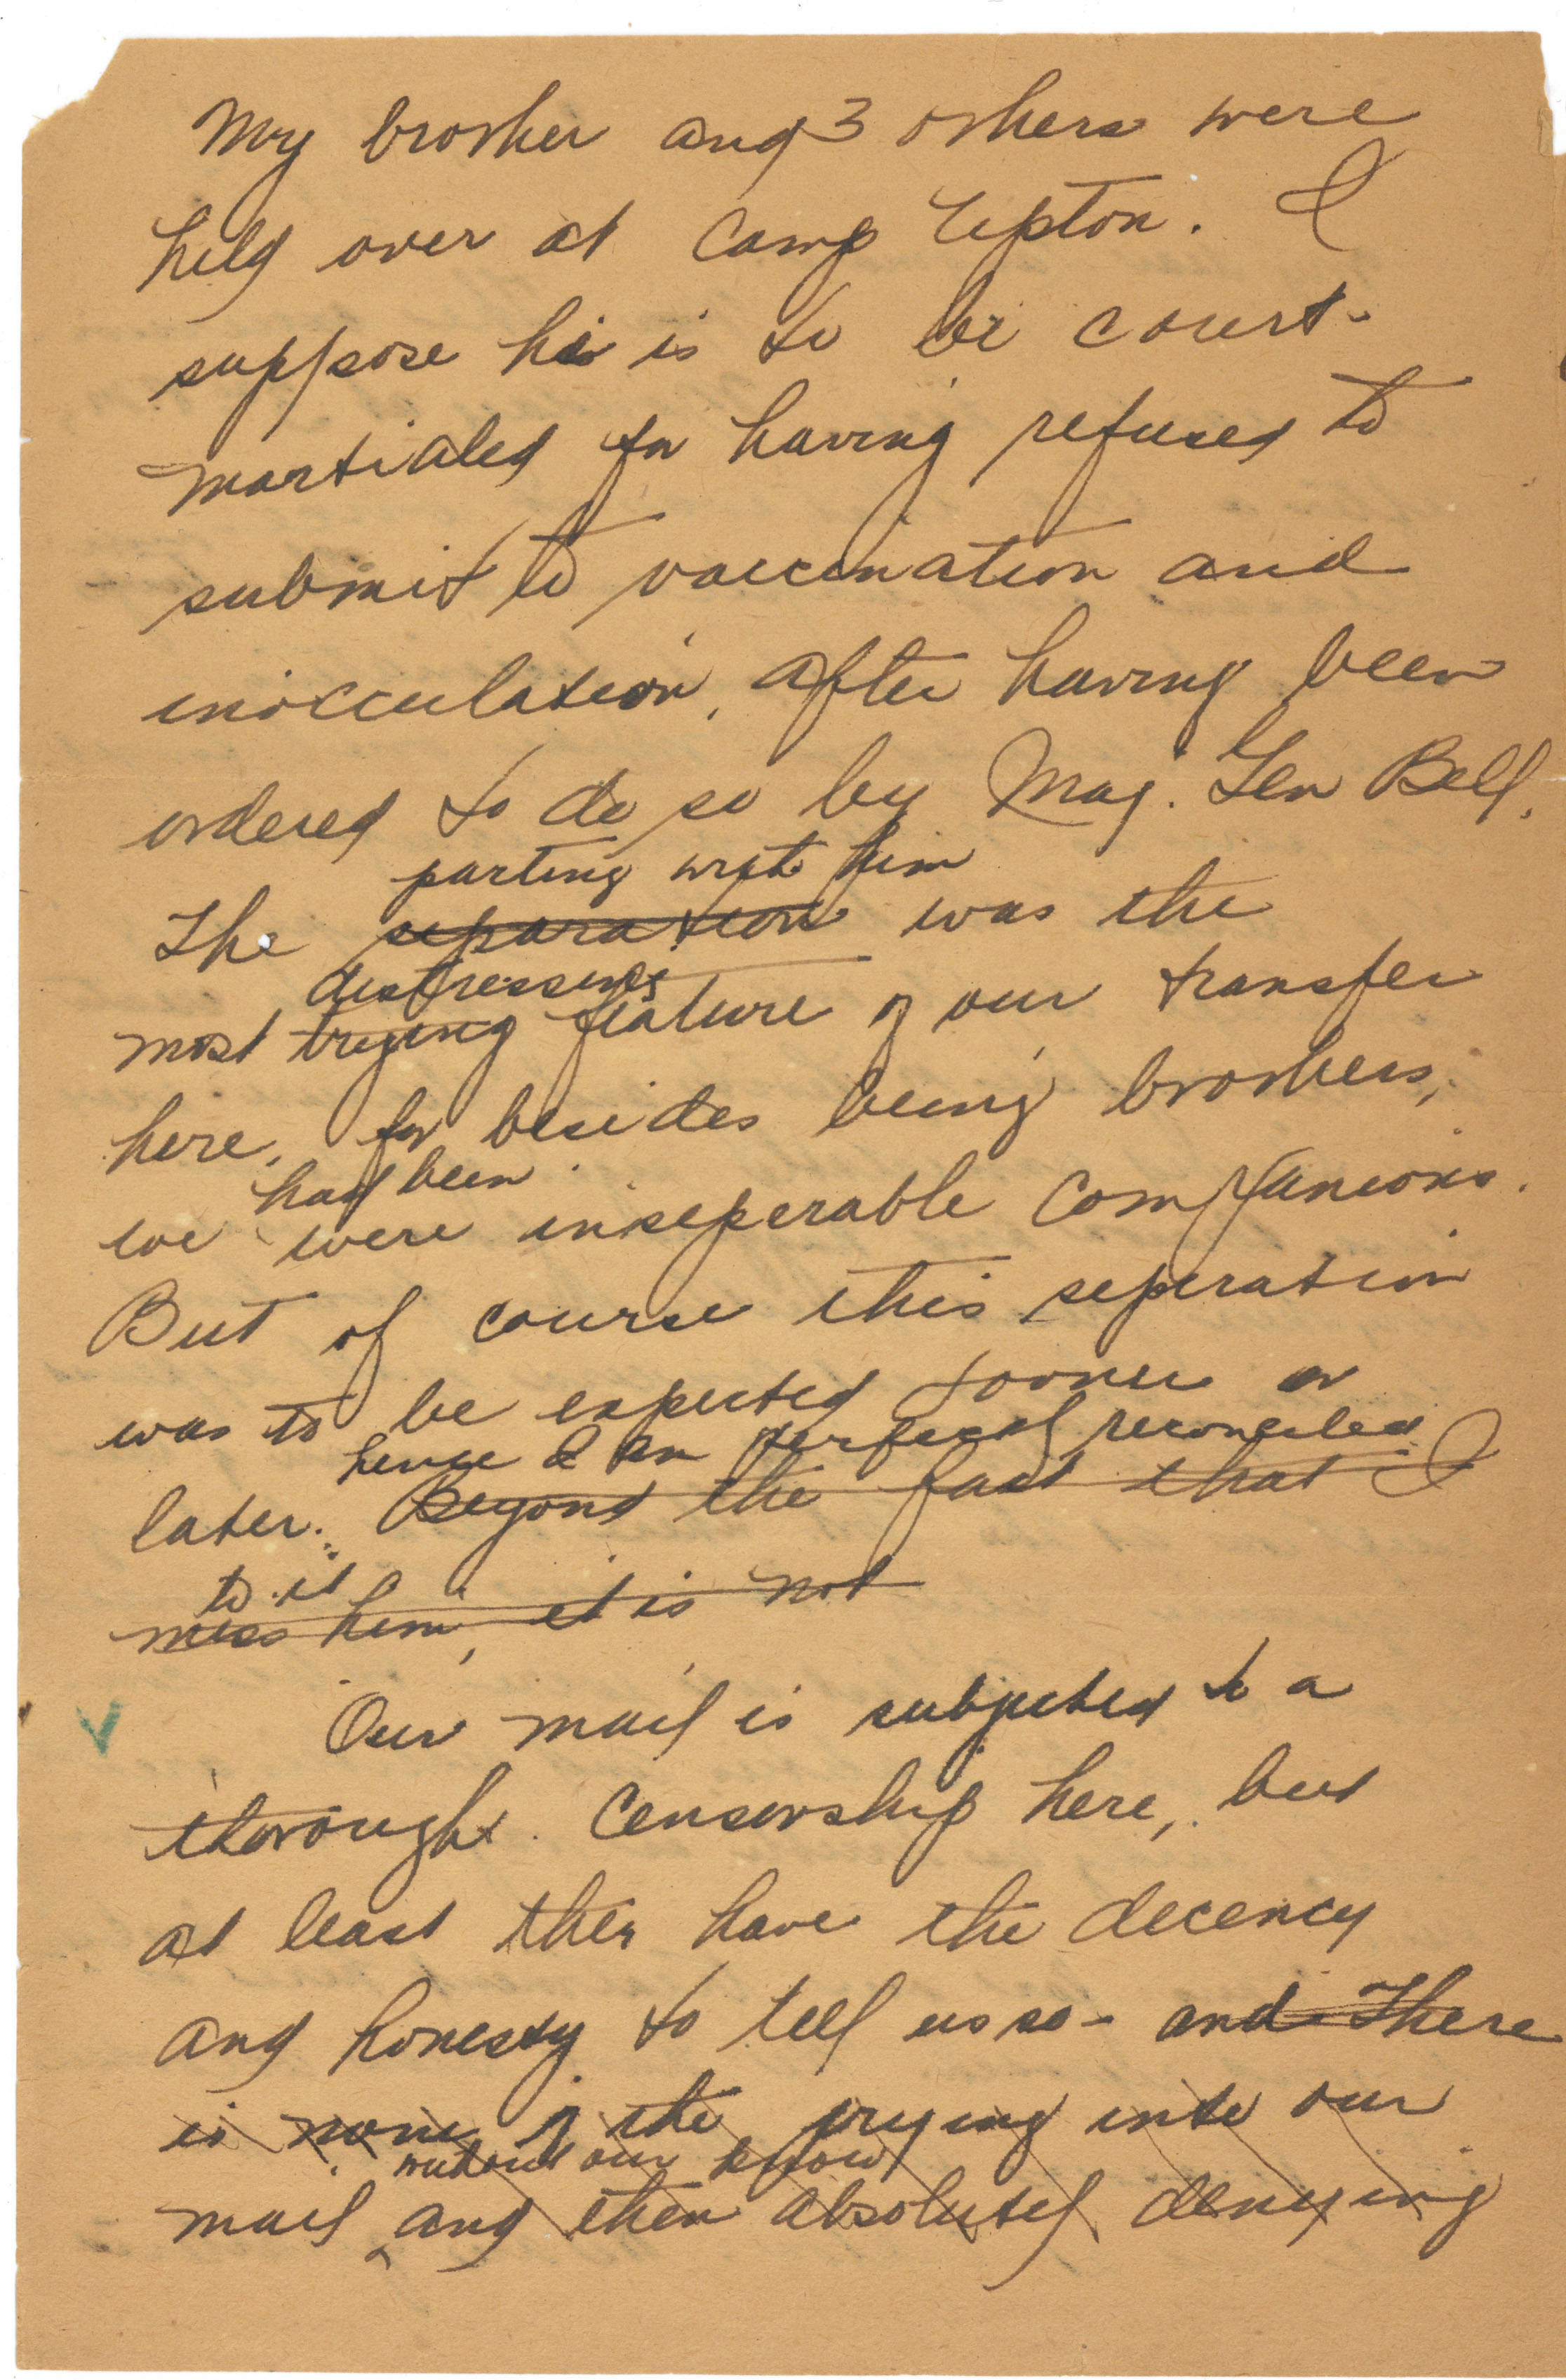 My brother and 3 others were
held over at Camp Upton. I
suppose he is to be court-
martialed for having refused to
submit to vaccination and
inocculation, after having been
ordered to do so by Maj. Gen Bell.
parting with him
The separation was the
distressing
most trying feature of our transfer
here, for besides being brothers,
had been
we were inseperable companions.
But of course this seperation
was to be expected sooner or
hence I am perfectly reconciled
later. Beyond the fact that I
to it
miss him, it is not
Our mail is subjected to a
thorough censorship here, but
at least they have the decency
and honesty to tell us so - and There
is none of the prying into our
without our know
mail and then absolutely denying